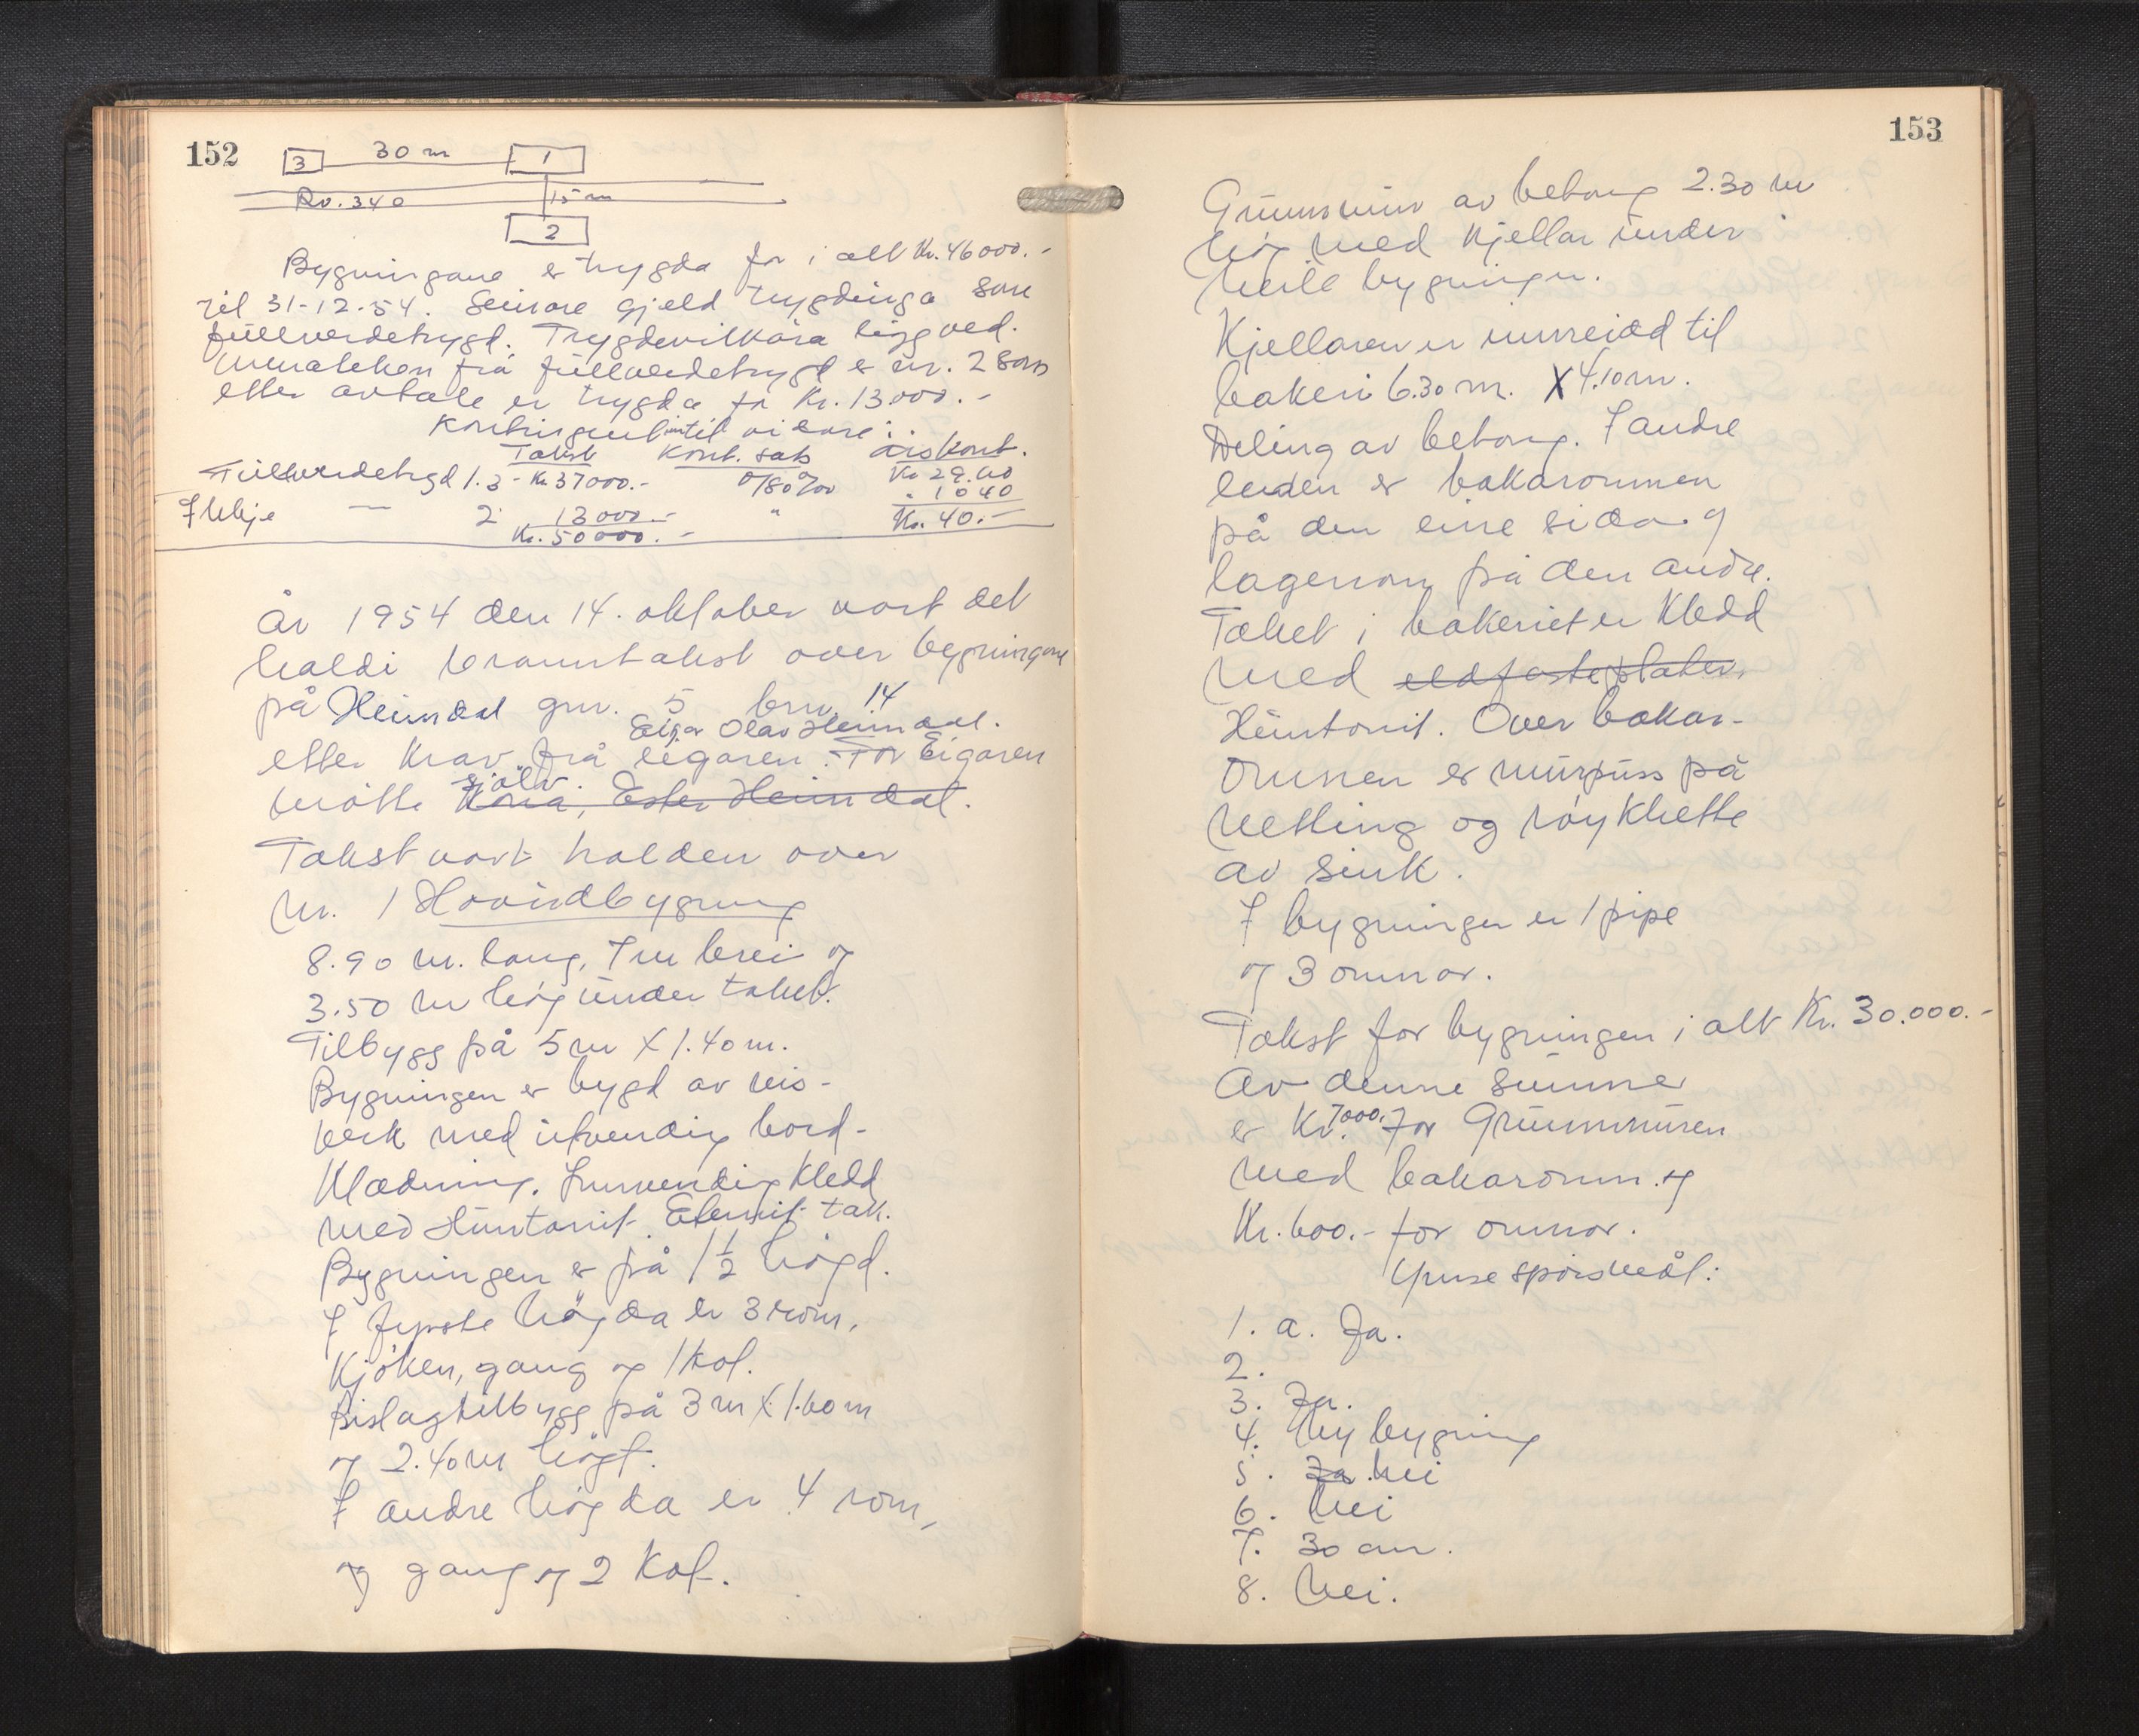 152
3 30 m 1
Rv. 340 15 m
2
Bygningane er trygda for i alt Kr. 46000.-
til 31-12-54. Seinare gjeld trygdinga som
fullverdetrygd. Trygdevilkåra ligg ved.
Unnateken frå fullverdetrygd er nr. 2 som
etter avtale er trygda for Kr. 13000.-
Kontingent inntil vidare:
Takst Kont. sats årskont.
Fullverdetrygd 1.3 - Kr. 37000.- 0/80 %00 Kr 29.60
Ikkje — 2 13000.- " " 10 40
Kr. 50000.- Kr. 40.-
År 1954 den 14. oktober vart det
haldi branntakst over bygningane
på Heimdal gnr. 5 bnr. 14
Eigar Olav Heimdal.
etter krav frå eigaren. For Eigaren
sjølv.
møtte Kona, Ester Heimdal.
Takst vart halden over
Nr. 1 Hovudbygning
8.90 m. lang, 7 m brei og
3.50 m høg under taket.
Tilbygg på 5 m X 1.40 m.
Bygningen er bygd av reis-
verk med utvendig bord-
klædning. Innvendig kledd
med Huntonit. Eternit tak.
Bygningen er på 1 1/2 høgd.
I fyrste høgda er 3 rom,
Kjøken, gang og 1 kot.
Bislagtilbygg på 3 m X 1.60 m
og 2.40 m høgt.
I andre høgda er 4 rom,
og gang og 2 kot.
153
Grunnmur av betong 2.30 m
høg med kjellar under
heile bygningen.
Kjellaren er innreidd til
bakeri 6.30 m. X 4.10 m.
Deling av betong. I andre
enden er bakaromnen
på den eine sida og
lagerrom på den andre.
Taket i bakeriet er kledd
med eldfaste plater.
Huntonit. Over bakar-
omnen er murpuss på
netting og røykhette
av sink.
I bygningen er 1 pipe
og 3 omnar.
Takst for bygningen i alt Kr. 30.000.-
Av denne summe
er Kr. 7000.- for Grunnmuren
med bakaromn og
Kr. 600.- for omnar.
Ymse spørsmål:
1. a. Ja.
2.
3. Ja.
4. Ny bygning
5. Ja. nei
6. Nei
7. 30 cm.
8. Nei.